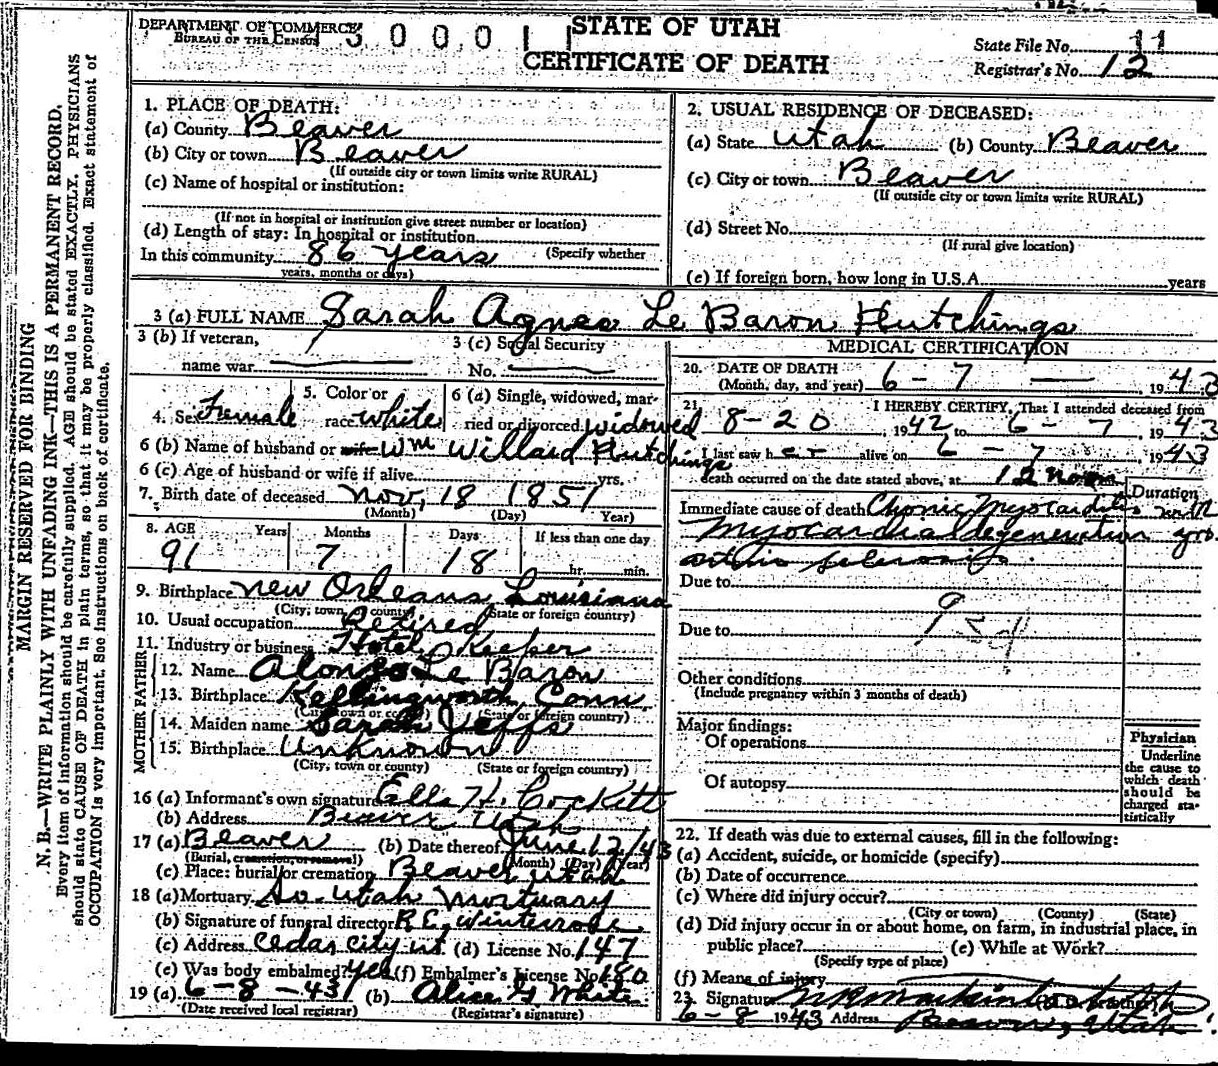 DEPARTMENT OF COMMERCE
BUREAU OF THE CENSUS
STATE OF UTAH
CERTIFICATE OF DEATH
State File No. 11
Registrar's No. 12
MARGIN RESERVED FOR BINDING
N. B.—WRITE PLAINLY WITH UNFADING INK—THIS IS A PERMANENT RECORD.
Every item of information should be carefully supplied. AGE should be stated EXACTLY. PHYSICIANS
should state CAUSE OF DEATH in plain terms, so that it may be properly classified. Exact statement of
OCCUPATION is very important. See instructions on back of certificate.
1. PLACE OF DEATH:
(a) County Beaver
(b) City or town Beaver
(If outside city or town limits write RURAL)
(c) Name of hospital or institution:
(If not in hospital or institution give street number or location)
(d) Length of stay: In hospital or institution
In this community 86 years (Specify whether
years, months or days)
2. USUAL RESIDENCE OF DECEASED:
(a) State Utah (b) County Beaver
(c) City or town Beaver
(If outside city or town limits write RURAL)
(d) Street No.
(If rural give location)
(e) If foreign born, how long in U.S.A. years
3 (a) FULL NAME Sarah Agnes Le Baron Hutchings
3 (b) If veteran,
name war
3 (c) Social Security
No.
4. Sex Female
5. Color or
race white
6 (a) Single, widowed, mar-
ried or divorced widowed
6 (b) Name of husband or wife Wm Willard Hutchings
6 (c) Age of husband or wife if alive yrs.
7. Birth date of deceased Nov. 18 1851
(Month) (Day) Year)
8. AGE Years Months Days If less than one day
91 7 18 hr. min.
9. Birthplace New Orleans Louisiana
(City, town or county) (State or foreign country)
10. Usual occupation Retired
11. Industry or business Hotel Keeper
FATHER
12. Name Alonzo Le Baron
13. Birthplace Kellingworth Conn
(City, town or county) (State or foreign country)
MOTHER
14. Maiden name Sarah Jeffs
15. Birthplace Unknown
(City, town or county) (State or foreign country)
16 (a) Informant's own signature Ella H. Cockitt
(b) Address Beaver Utah
17 (a) Beaver (b) Date thereof June 12/43
(Burial, cremation, or removal) (Month) (Day) (Year)
(c) Place: burial or cremation Beaver Utah
18 (a) Mortuary So. Utah Mortuary
(b) Signature of funeral director R.E. Winterrose
(c) Address Cedar City Ut. (d) License No. 147
(e) Was body embalmed? Yes (f) Embalmer's License No. 180
19 (a) 6-8-43 (b) Alice G White
(Date received local registrar) (Registrar's signature)
MEDICAL CERTIFICATION
20. DATE OF DEATH
(Month, day, and year) 6-7 — , 1943
21. I HEREBY CERTIFY, That I attended deceased from
8-20, 1942 to 6-7, 1943
I last saw her alive on 6-7, 1943
death occurred on the date stated above, at 12 noon
Duration
Immediate cause of death Chronic Myocarditis with
Myocardial degeneration yrs.
arterio sclerosis.
Due to
Due to
Other conditions
(Include pregnancy within 3 months of death)
Major findings:
Of operations
Of autopsy
Physician
Underline
the cause to
which death
should be
charged sta-
tistically
22. If death was due to external causes, fill in the following:
(a) Accident, suicide, or homicide (specify)
(b) Date of occurrence
(c) Where did injury occur?
(City or town) (County) (State)
(d) Did injury occur in or about home, on farm, in industrial place, in
public place? (e) While at Work?
(Specify type of place)
(f) Means of injury
23. Signature
6-8 1943 Address Beaver, Utah